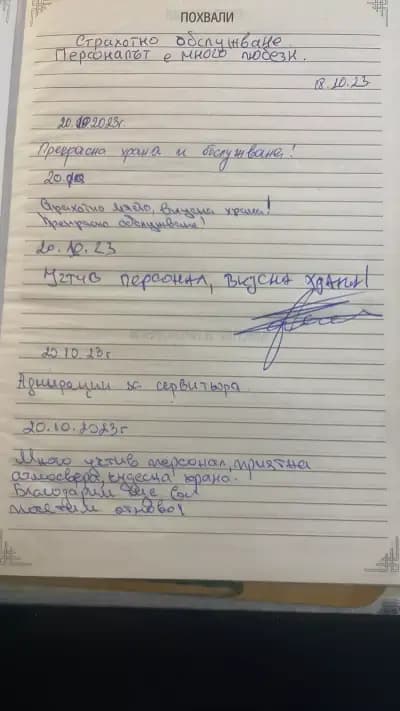 ПОХВАЛИ
Страхотно обслужване.
Персоналът е много любезн.
18.10.23
20.10.2023г.
Прекрасна храна и обслужване!
20.
Страхотно място, вкусна храна!
Прекрасно обслужване!
20.10.23
Учтив персонал, вкусна храна!
20.10.23г
Адмирации за сервитьора.
20.10.2023г
Много учтив персонал, приятна
атмосфера, чудесна храна.
Благодарим! Ще Ви
посетим отново!